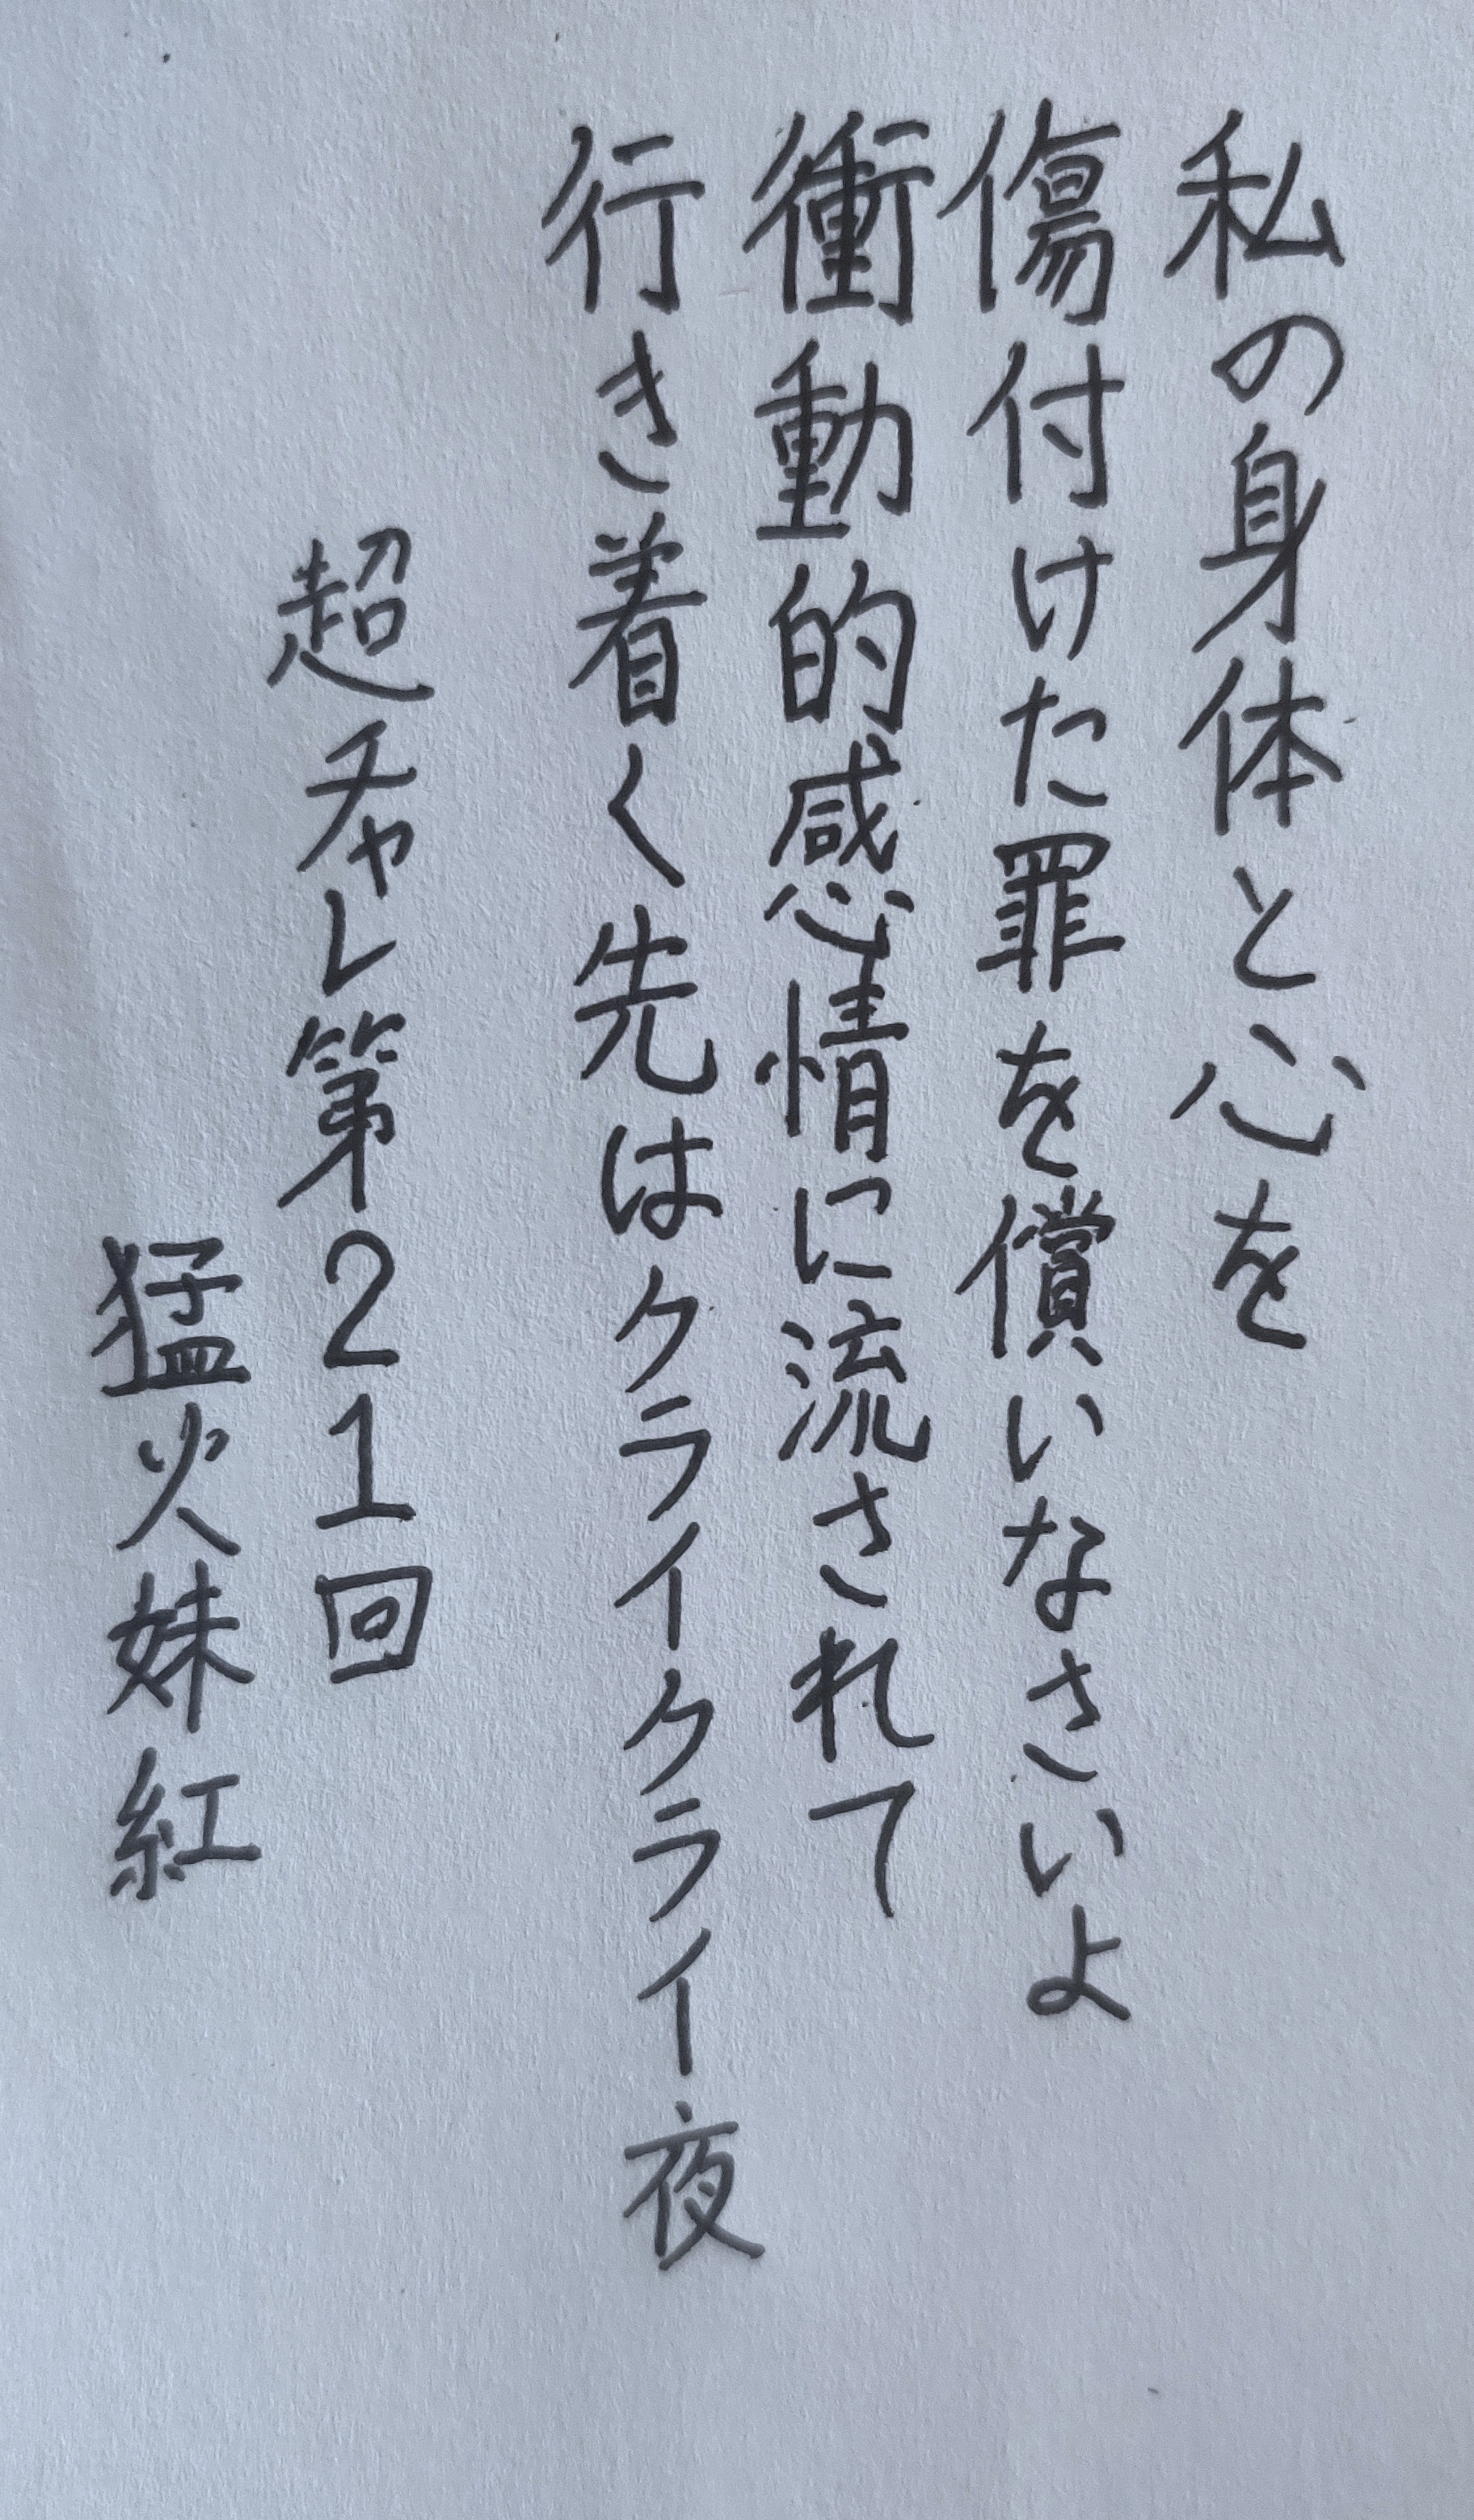 私の身体と心を
傷付けた罪を償いなさいよ
衝動的感情に流されて
行き着く先はクライクライ夜
超チャレ第21回
猛火妹紅